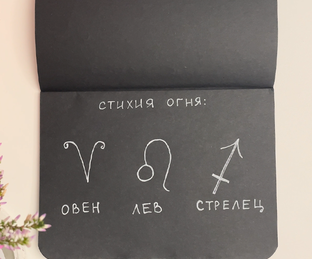 СТИХИЯ ОГНЯ:
ОВЕН ЛЕВ СТРЕЛЕЦ